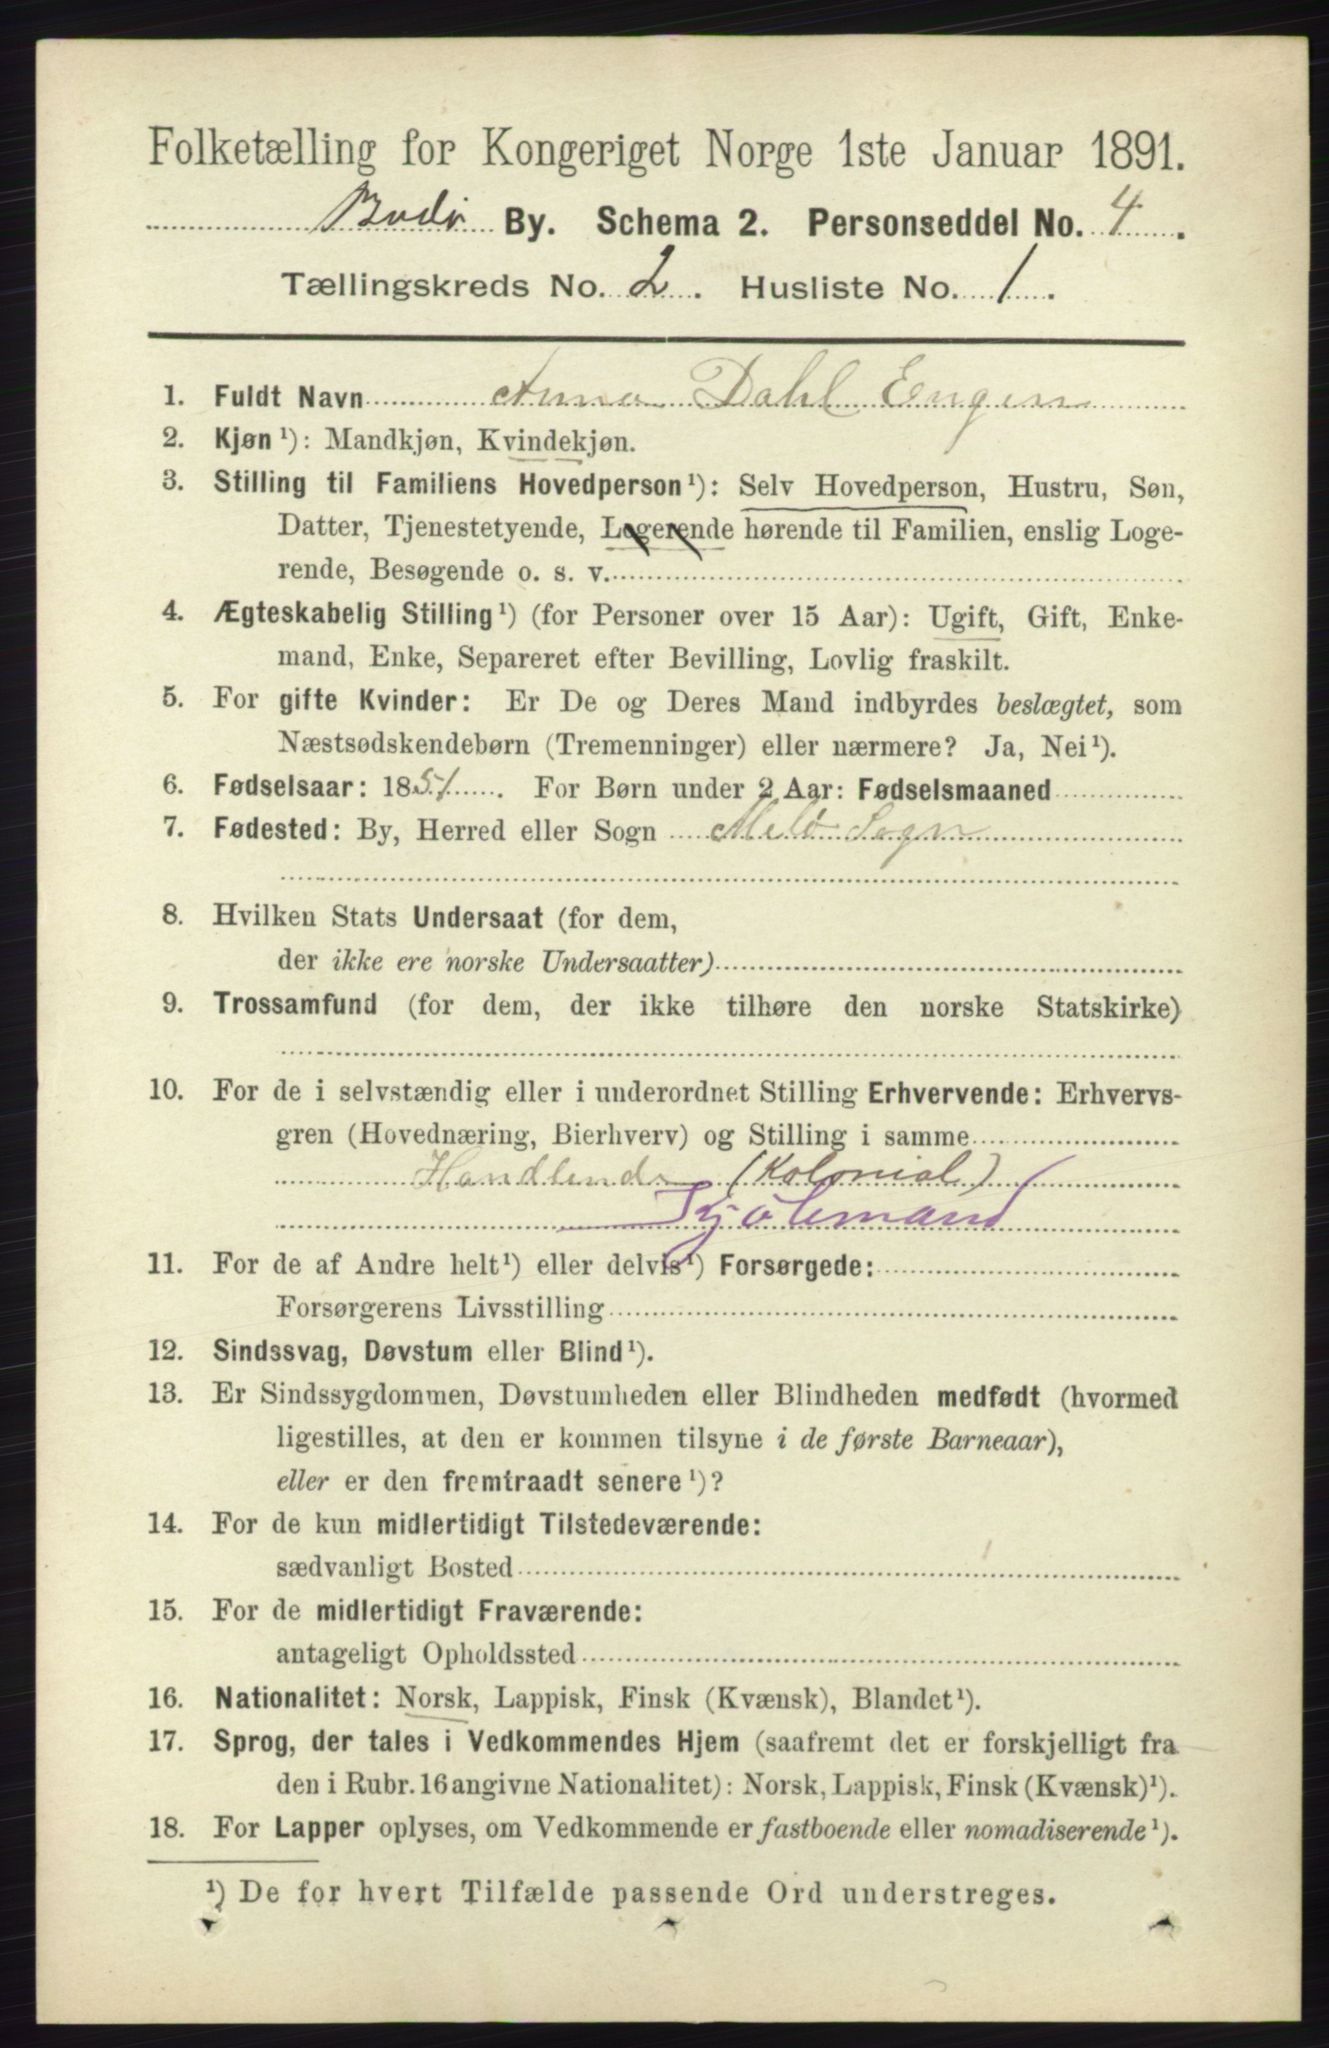 Folketælling for Kongeriget Norge 1ste Januar 1891.
Bodö By. Schema 2. Personseddel No. 4.
Tællingskreds No. 2. Husliste No. 1.
1. Fuldt Navn Anna Dahl Engen
2. Kjøn ¹): Mandkjøn, Kvindekjøn.
3. Stilling til Familiens Hovedperson ¹): Selv Hovedperson, Hustru, Søn,
Datter, Tjenestetyende, Logerende hørende til Familien, enslig Loge-
rende, Besøgende o. s. v.
4. Ægteskabelig Stilling ¹) (for Personer over 15 Aar): Ugift, Gift, Enke-
mand, Enke, Separeret efter Bevilling, Lovlig fraskilt.
5. For gifte Kvinder: Er De og Deres Mand indbyrdes beslægtet, som
Næstsødskendebørn (Tremenninger) eller nærmere? Ja, Nei ¹).
6. Fødselsaar: 1851. For Børn under 2 Aar: Fødselsmaaned
7. Fødested: By, Herred eller Sogn Melö Sogn
8. Hvilken Stats Undersaat (for dem,
der ikke ere norske Undersaatter)
9. Trossamfund (for dem, der ikke tilhøre den norske Statskirke)
10. For de i selvstændig eller i underordnet Stilling Erhvervende: Erhvervs-
gren (Hovednæring, Bierhverv) og Stilling i samme
Handlende (Kolonial)
11. For de af Andre helt ¹) eller delvis ¹) Forsørgede:
Forsørgerens Livsstilling
12. Sindssvag, Døvstum eller Blind ¹).
13. Er Sindssygdommen, Døvstumheden eller Blindheden medfødt (hvormed
ligestilles, at den er kommen tilsyne i de første Barneaar),
eller er den fremtraadt senere ¹)?
14. For de kun midlertidigt Tilstedeværende:
sædvanligt Bosted
15. For de midlertidigt Fraværende:
antageligt Opholdssted
16. Nationalitet: Norsk, Lappisk, Finsk (Kvænsk), Blandet ¹).
17. Sprog, der tales i Vedkommendes Hjem (saafremt det er forskjelligt fra
den i Rubr. 16 angivne Nationalitet): Norsk, Lappisk, Finsk (Kvænsk) ¹).
18. For Lapper oplyses, om Vedkommende er fastboende eller nomadiserende ¹).
¹) De for hvert Tilfælde passende Ord understreges.